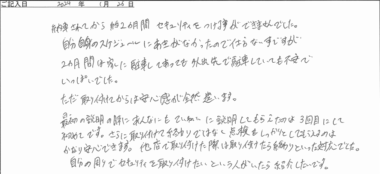 ご記入日 2024 年 1 月 26 日
納車されてから約2か月間 セキュリティをつける事ができませんでした。
自分自身のスケジュールに余裕がなかったので仕方ない事ですが
2か月間は家に駐車してあっても外出先で駐車していても不安で
いっぱいでした。
ただ取り付けてからは安心感が全然違います。
最初の説明の時にあんなにもていねいに説明してもらえたのは3回目にして
初めてです。さらに取り付けて終わりではなく点検もしっかりとしてもらえるのは
かなり安心できます。他店で取り付けた際は取り付けたら終わりといった対応でした。
自分の周りでセキュリティを取り付けたいという人がいたら紹介したいです。